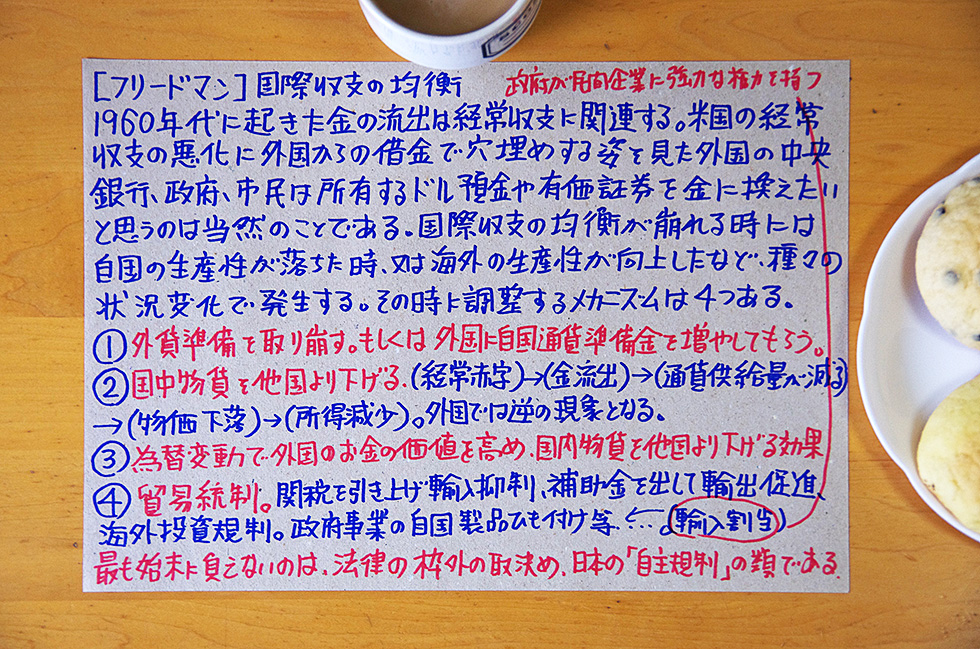 [フリードマン]国際収支の均衡 政府が民間企業に強力な権力を持つ
1960年代に起きた金の流出は経常収支に関連する。米国の経常
収支の悪化に外国からの借金で穴埋めする姿を見た外国の中央
銀行、政府、市民は所有するドル預金や有価証券を金に換えたい
と思うのは当然のことである。国際収支の均衡が崩れる時には
自国の生産性が落ちた時、又は海外の生産性が向上したなど、種々の
状況変化で発生する。その時に調整するメカニズムは4つある。
①外貨準備を取り崩す。もしくは外国に自国通貨準備金を増やしてもらう。
②国中物貨を他国より下げる、(経常赤字)→(金流出)→(通貨供給量が減る)
→(物価下落)→(所得減少)。外国では逆の現象となる。
③為替変動で外国のお金の価値を高め、国内物貨を他国より下げる効果
④貿易統制。関税を引き上げ輸入抑制、補助金を出して輸出促進、
海外投資規制。政府事業の自国製品ひも付け等、←…(輸入割当)
最も始末に負えないのは、法律の枠外の取決め、日本の「自主規制」の類である。